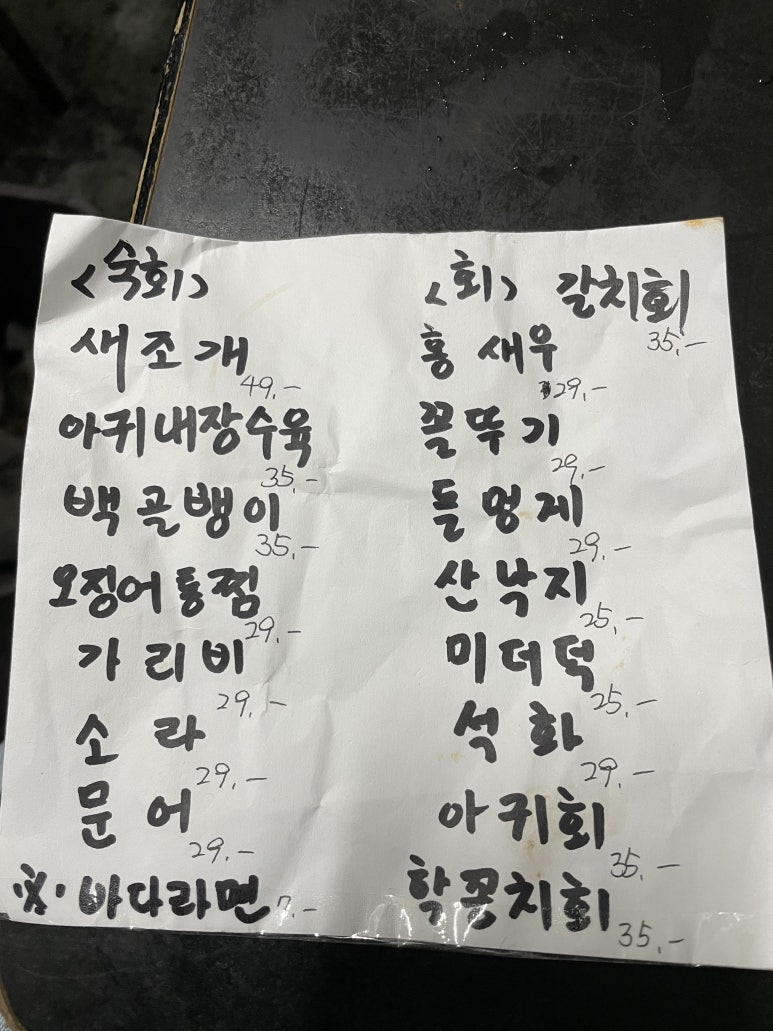 <숙회>
새조개
49.-
아귀내장수육
35.-
백골뱅이
35.-
오징어통찜
29.-
가리비
29.-
소라
29.-
문어
29.-
※ 바다라면
<회> 갈치회
35.-
홍새우
29.-
꼴뚜기
29.-
돌멍게
29.-
산낙지
25.-
미더덕
25.-
석화
29.-
아귀회
35.-
학꽁치회
35.-